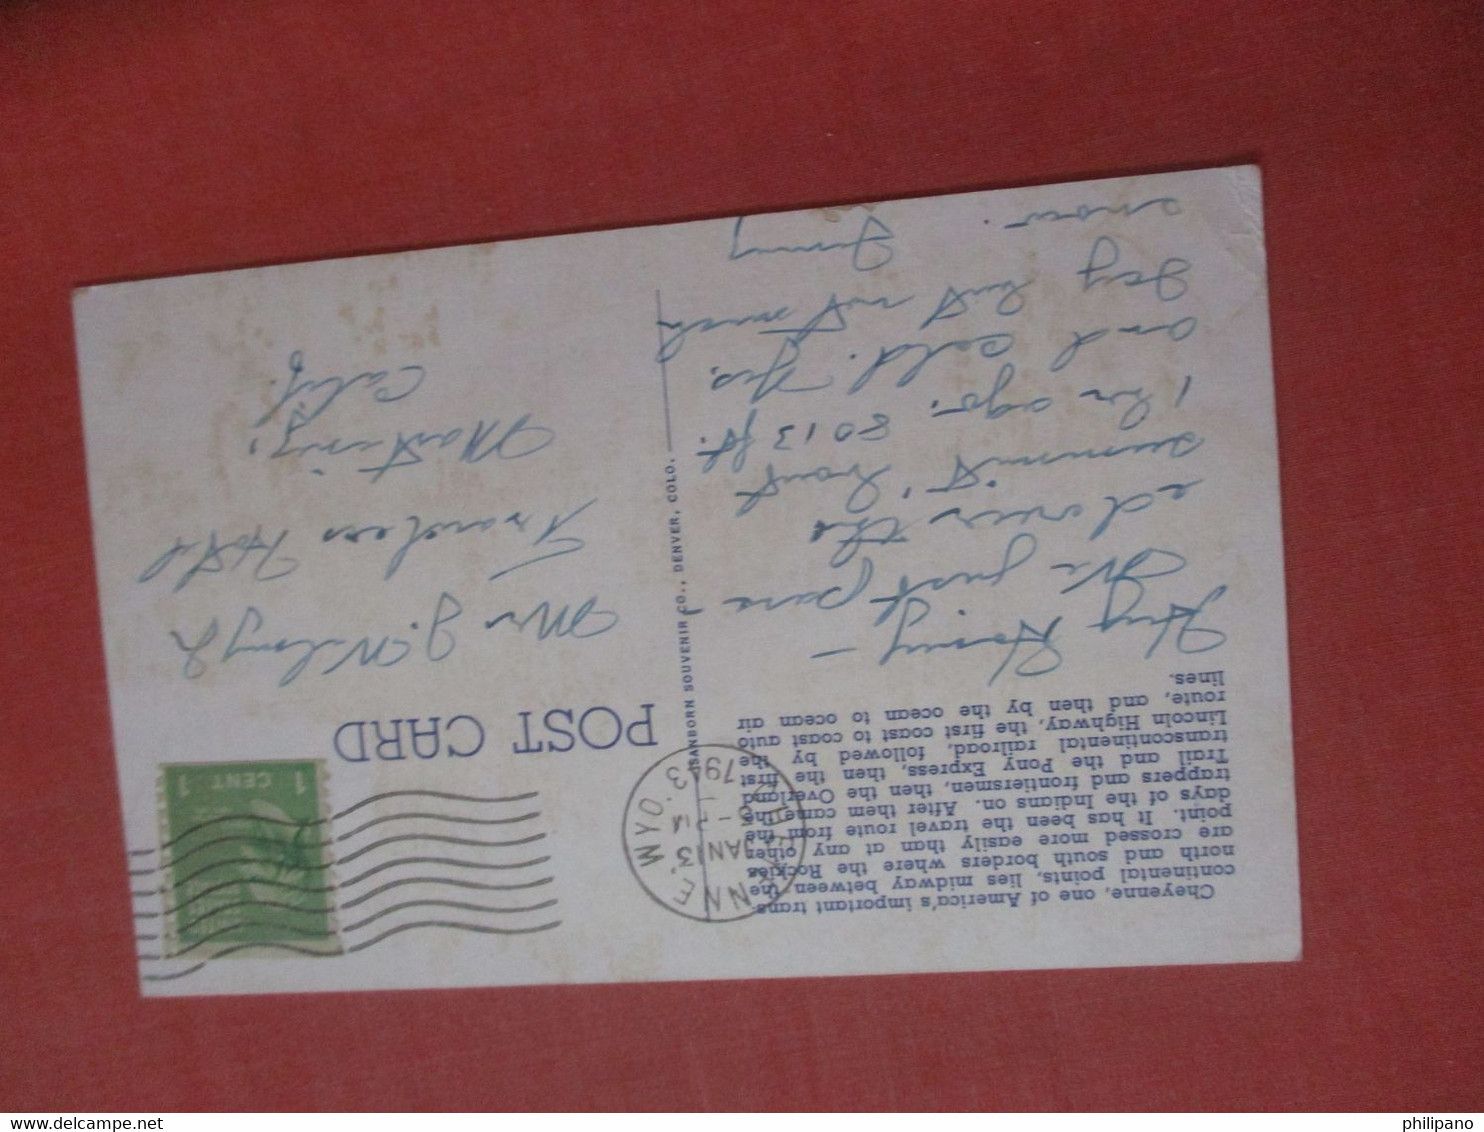 Cheyenne, one of America's important trans
continental points, lies midway between the
north and south borders where the Rockies
are crossed more easily than at any other
point. It has been the travel route from the
days of the Indians on. After them came the
trappers and frontiersmen, then the Overland
Trail and the Pony Express, then the first
transcontinental railroad, followed by the
Lincoln Highway, the first coast to coast auto
route, and then by the ocean to ocean air
lines.
We just pass
ed over the
summit about
1 hr ago. 8013 ft.
and cold. Yes.
but not much
snow.
Jimmy
SANBORN SOUVENIR CO., DENVER, COLO.
JAN 13
WYO.
POST CARD
1 CENT 1
Mr J.
Hotel
Calif.
philipano
delcampe.net